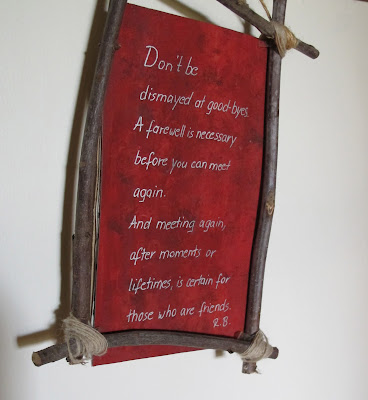 Don't be
dismayed at good-byes.
A farewell is necessary
before you can meet
again.
And meeting again,
after moments or
lifetimes, is certain for
those who are friends.
R.B.